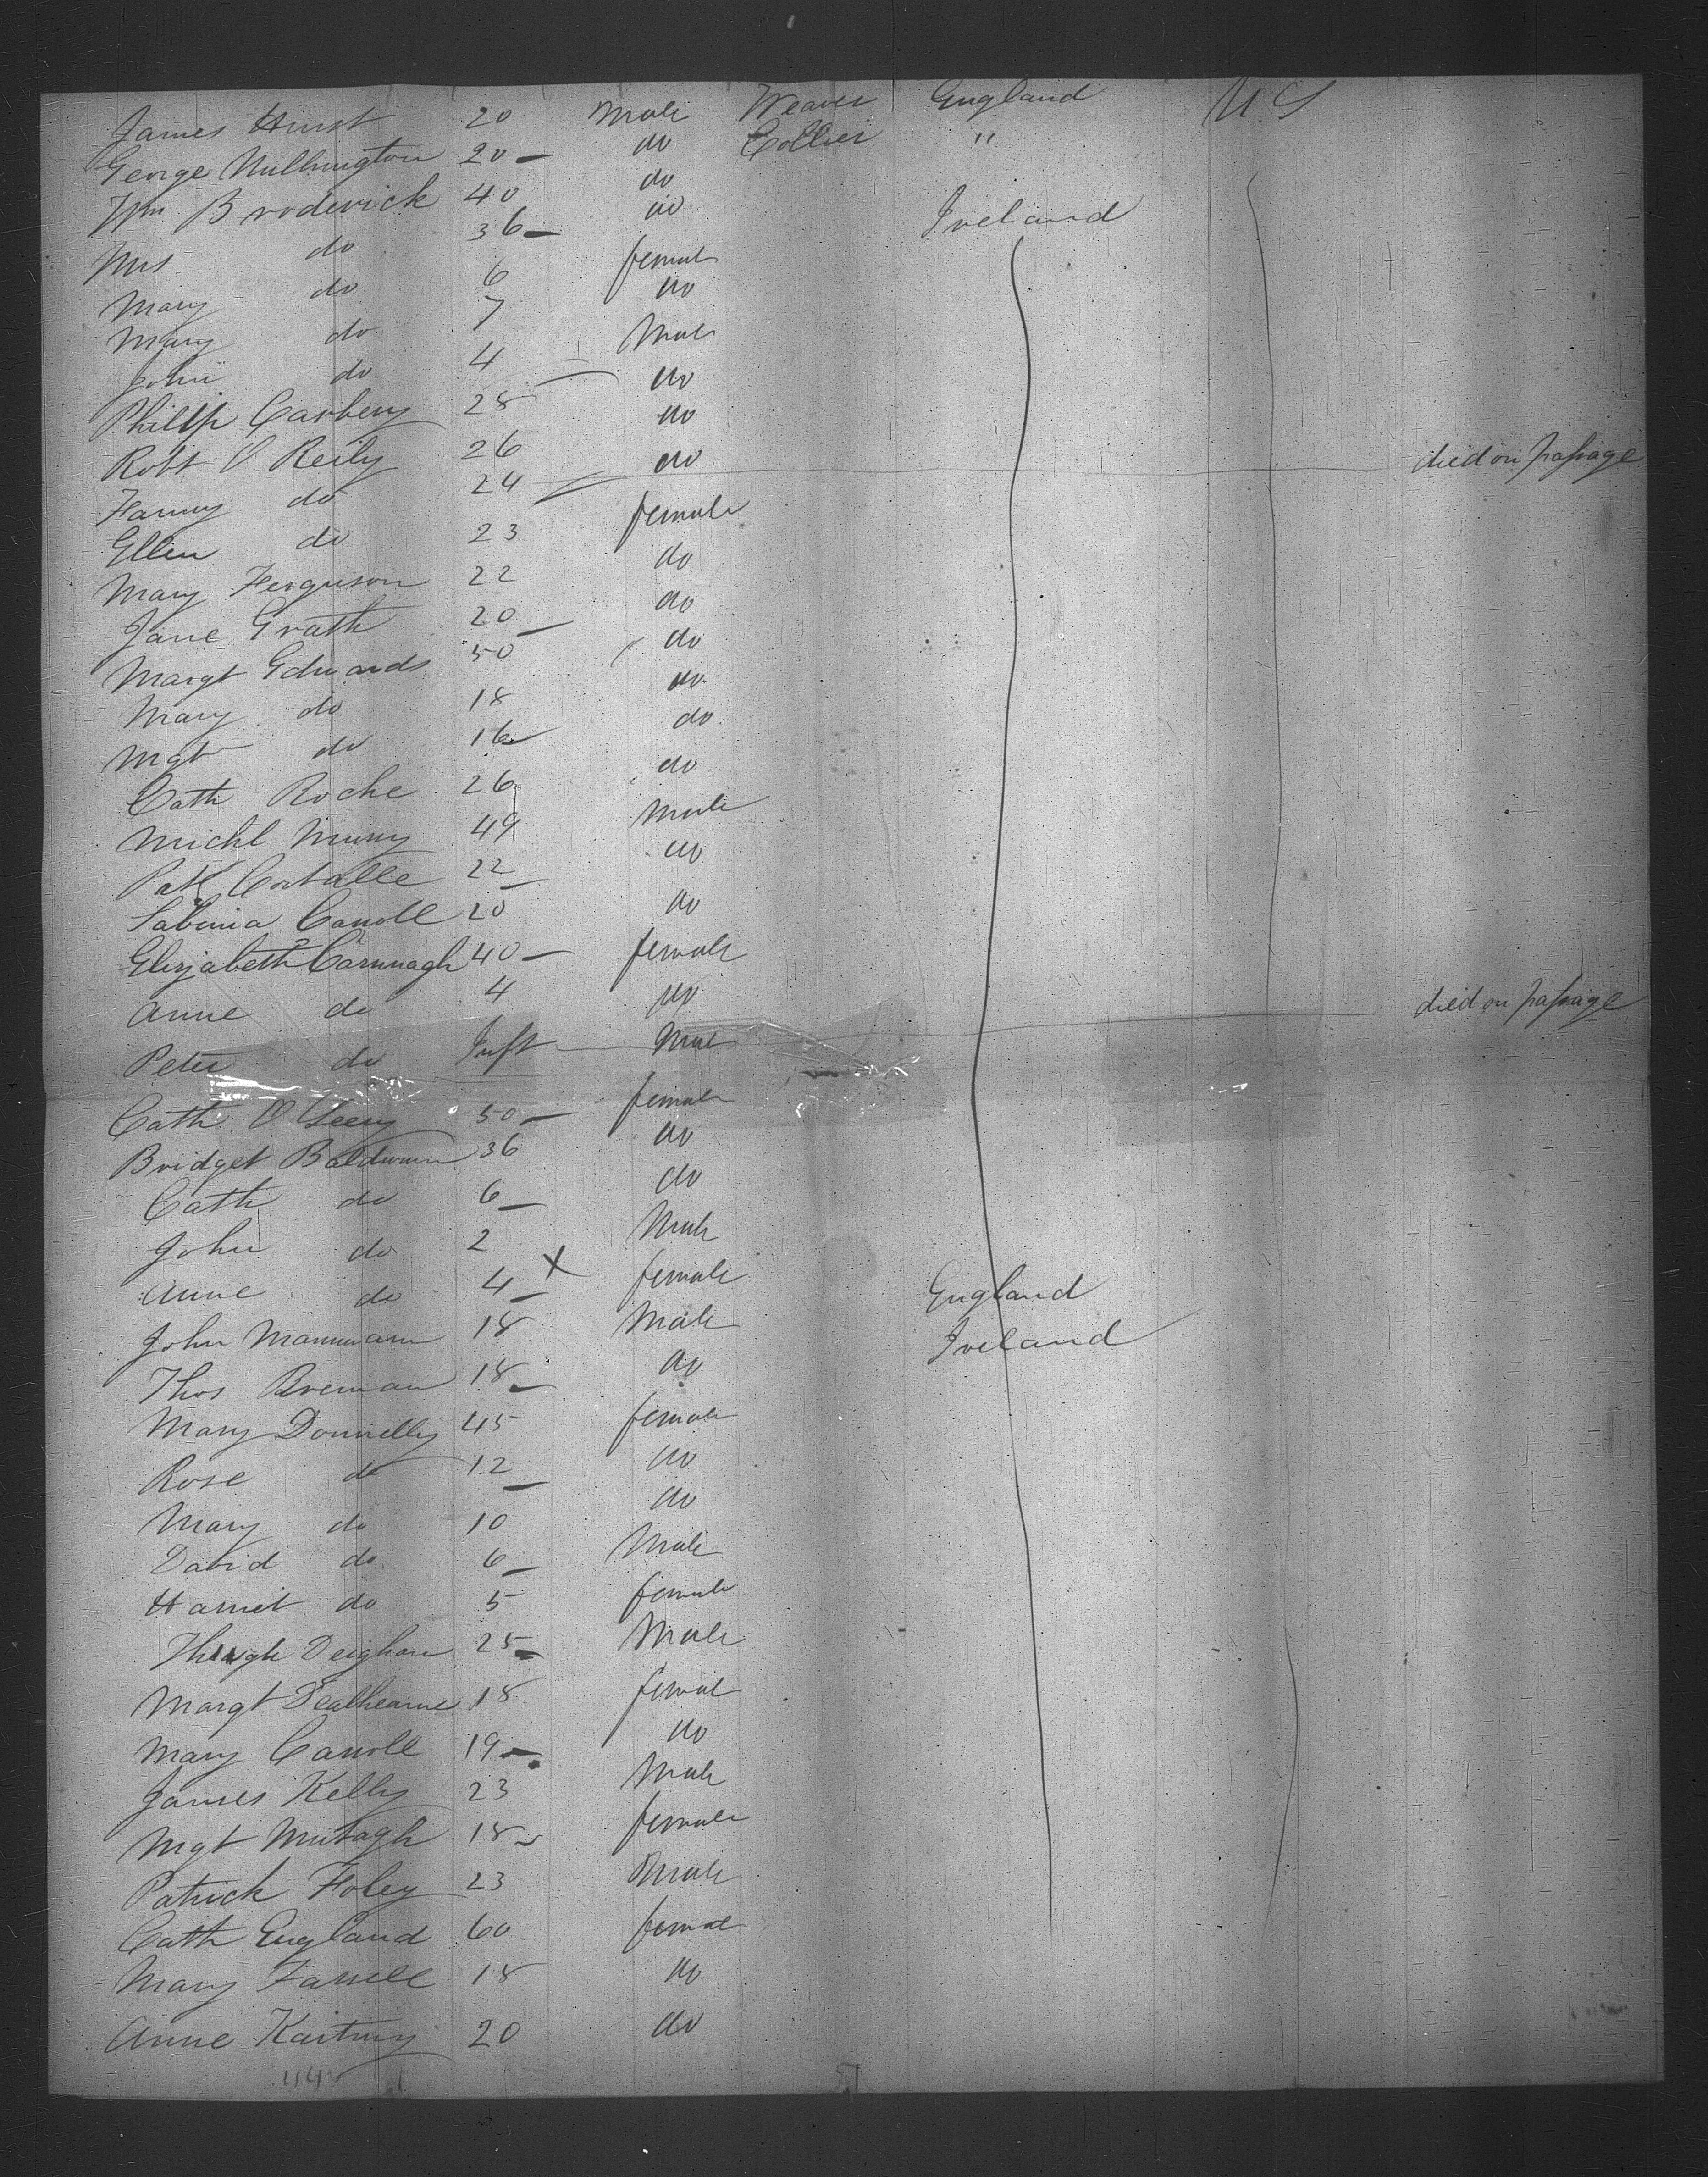 James Hurst 20 Male Weaver England U.S
George Millington 20 do Collier "
Wm Broderick 40 do Ireland
Mrs do 36 do
Mary do 6 female
Mary do 7 do
John do 4 Male
Philip Carbery 28 do
Robt O Reily 26 do
Fanny do 24 do died on passage
Ellen do 23 female
Mary Ferguson 22 do
Jane Grath 20 do
Margt Edwards 50 do
Mary do 18 do
Mgt do 16 do
Cath Roche 26 do
Michl 49 Male
Patk 22 do
Sabinia Carroll 20 do
Elizabeth Cavanagh 40 female
Anne do 4 do
Peter do Inft Male died on passage
Cath O 50 female
Bridget Baldwin 36 do
Cath do 6 do
John do 2 Male
Anne do 4 X female England
John 18 Male Ireland
Thos Brennan 18 do
Mary Donnelly 45 female
Rose do 12 do
Mary do 10 do
David do 6 Male
Harriet do 5 female
Hugh Deighan 25 Male
Margt 18 female
Mary Carroll 19 do
James Kelly 23 Male
Mgt Murtagh 18 female
Patrick Foley 23 Male
Cath England 60 female
Mary Farrell 18 do
Anne 20 do
44